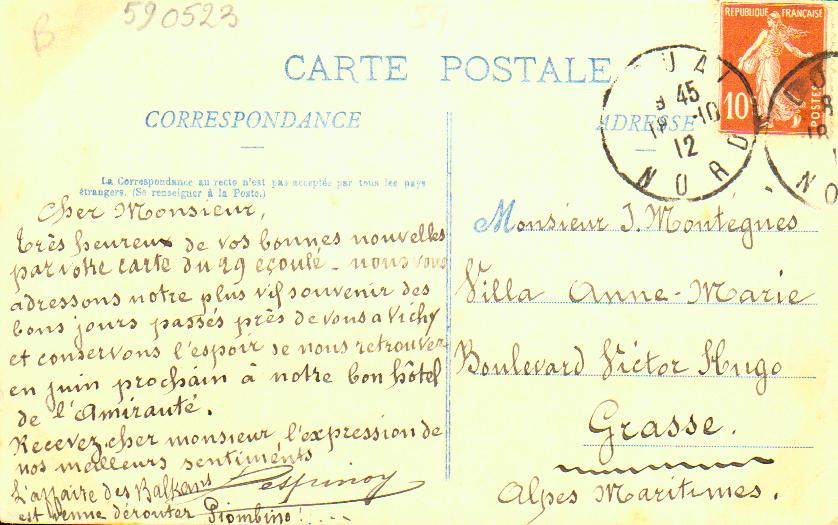 B 590523
RÉPUBLIQUE FRANÇAISE
10c
POSTES
CARTE POSTALE
UAI
9 45
18 -10
12
NORD
CORRESPONDANCE
ADRESSE
La Correspondance au recto n'est pas acceptée par tous les pays
étrangers. (Se renseigner à la Poste.)
Cher Monsieur,
très heureux de vos bonnes nouvelles
par votre carte du 29 écoulé - nous vous
adressons notre plus vif souvenir des
bons jours passés près de vous a Vichy
et conservons l'espoir se nous retrouver
en juin prochain à notre bon hôtel
de l'Amirauté.
Recevez, cher monsieur, l'expression de
nos meilleurs sentiments
L'affaire des Balkans
est venue dérouter Piombino! ....
Monsieur J. Montégnes
Villa Anne-Marie
Boulevard Victor Hugo
Grasse.
Alpes Maritimes.